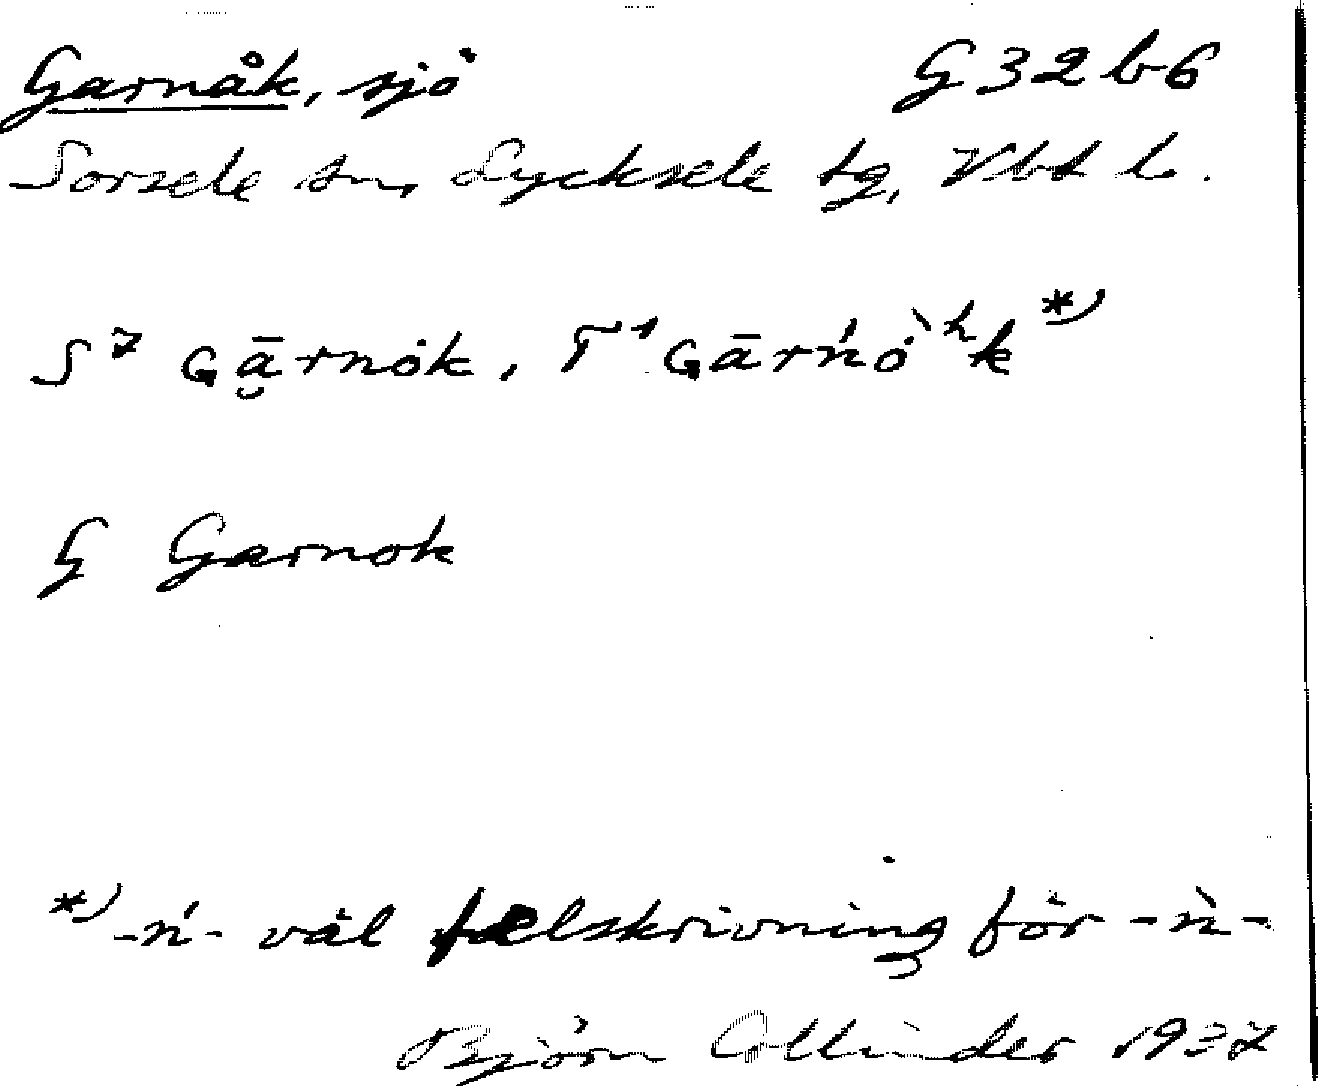 Garnåk, sjö G32b6
Sorsele sn, Lycksele tg, Vbt l.
S⁷ Gā̮rnȯk, T¹ Gārńȯ̀ʰk *)
G Garnok
*) -ń- väl felskrivning för -ǹ-
Björn Collinder 1937